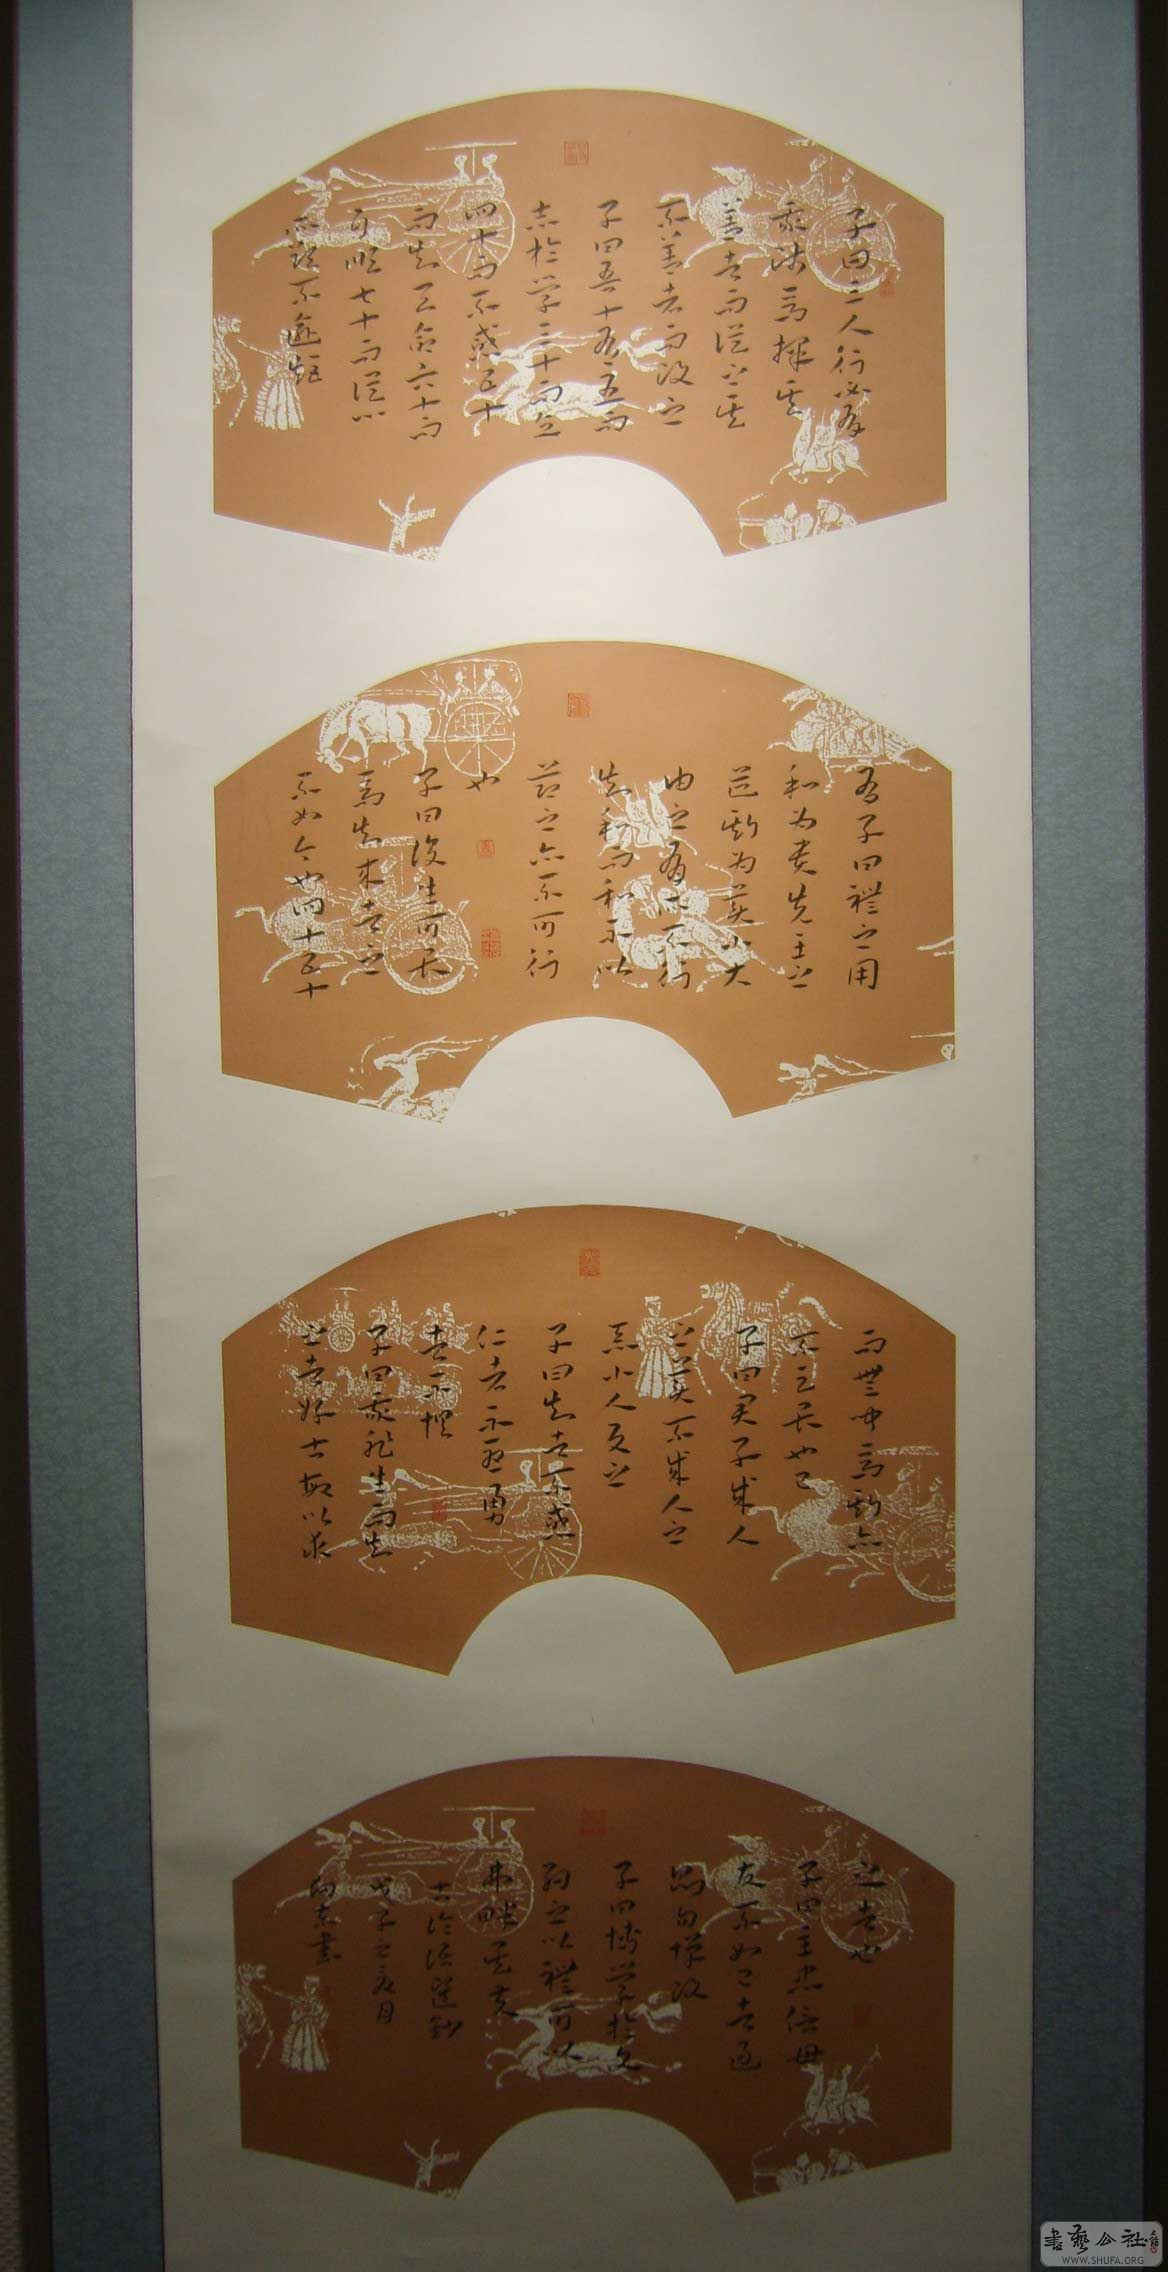 子曰三人行必有
我师焉择其
善者而従之其
不善者而改之
子曰吾十有五而
志於学三十而立
四十而不惑五十
而知天命六十而
耳順七十而従心
所欲不逾矩
有子曰禮之用
和为贵先王之
道斯为美小大
由之有所不行
知和而和不以
節之亦不可行
也
子曰後生可畏
焉知来者之
不如今也四十五十
而無聞焉斯亦
不足畏也已
子曰君子成人
之美不成人之
惡小人反之
子曰知者不惑
仁者不憂勇
者不懼
子曰我非生而知
之者好古敏以求
之者也
子曰主忠信毋
友不如己者過
則勿憚改
子曰博学於文
約之以禮可以
弗畔矣夫
右论语選鈔
戊子之夏月
書
書藝公社
WWW.SHUFA.ORG